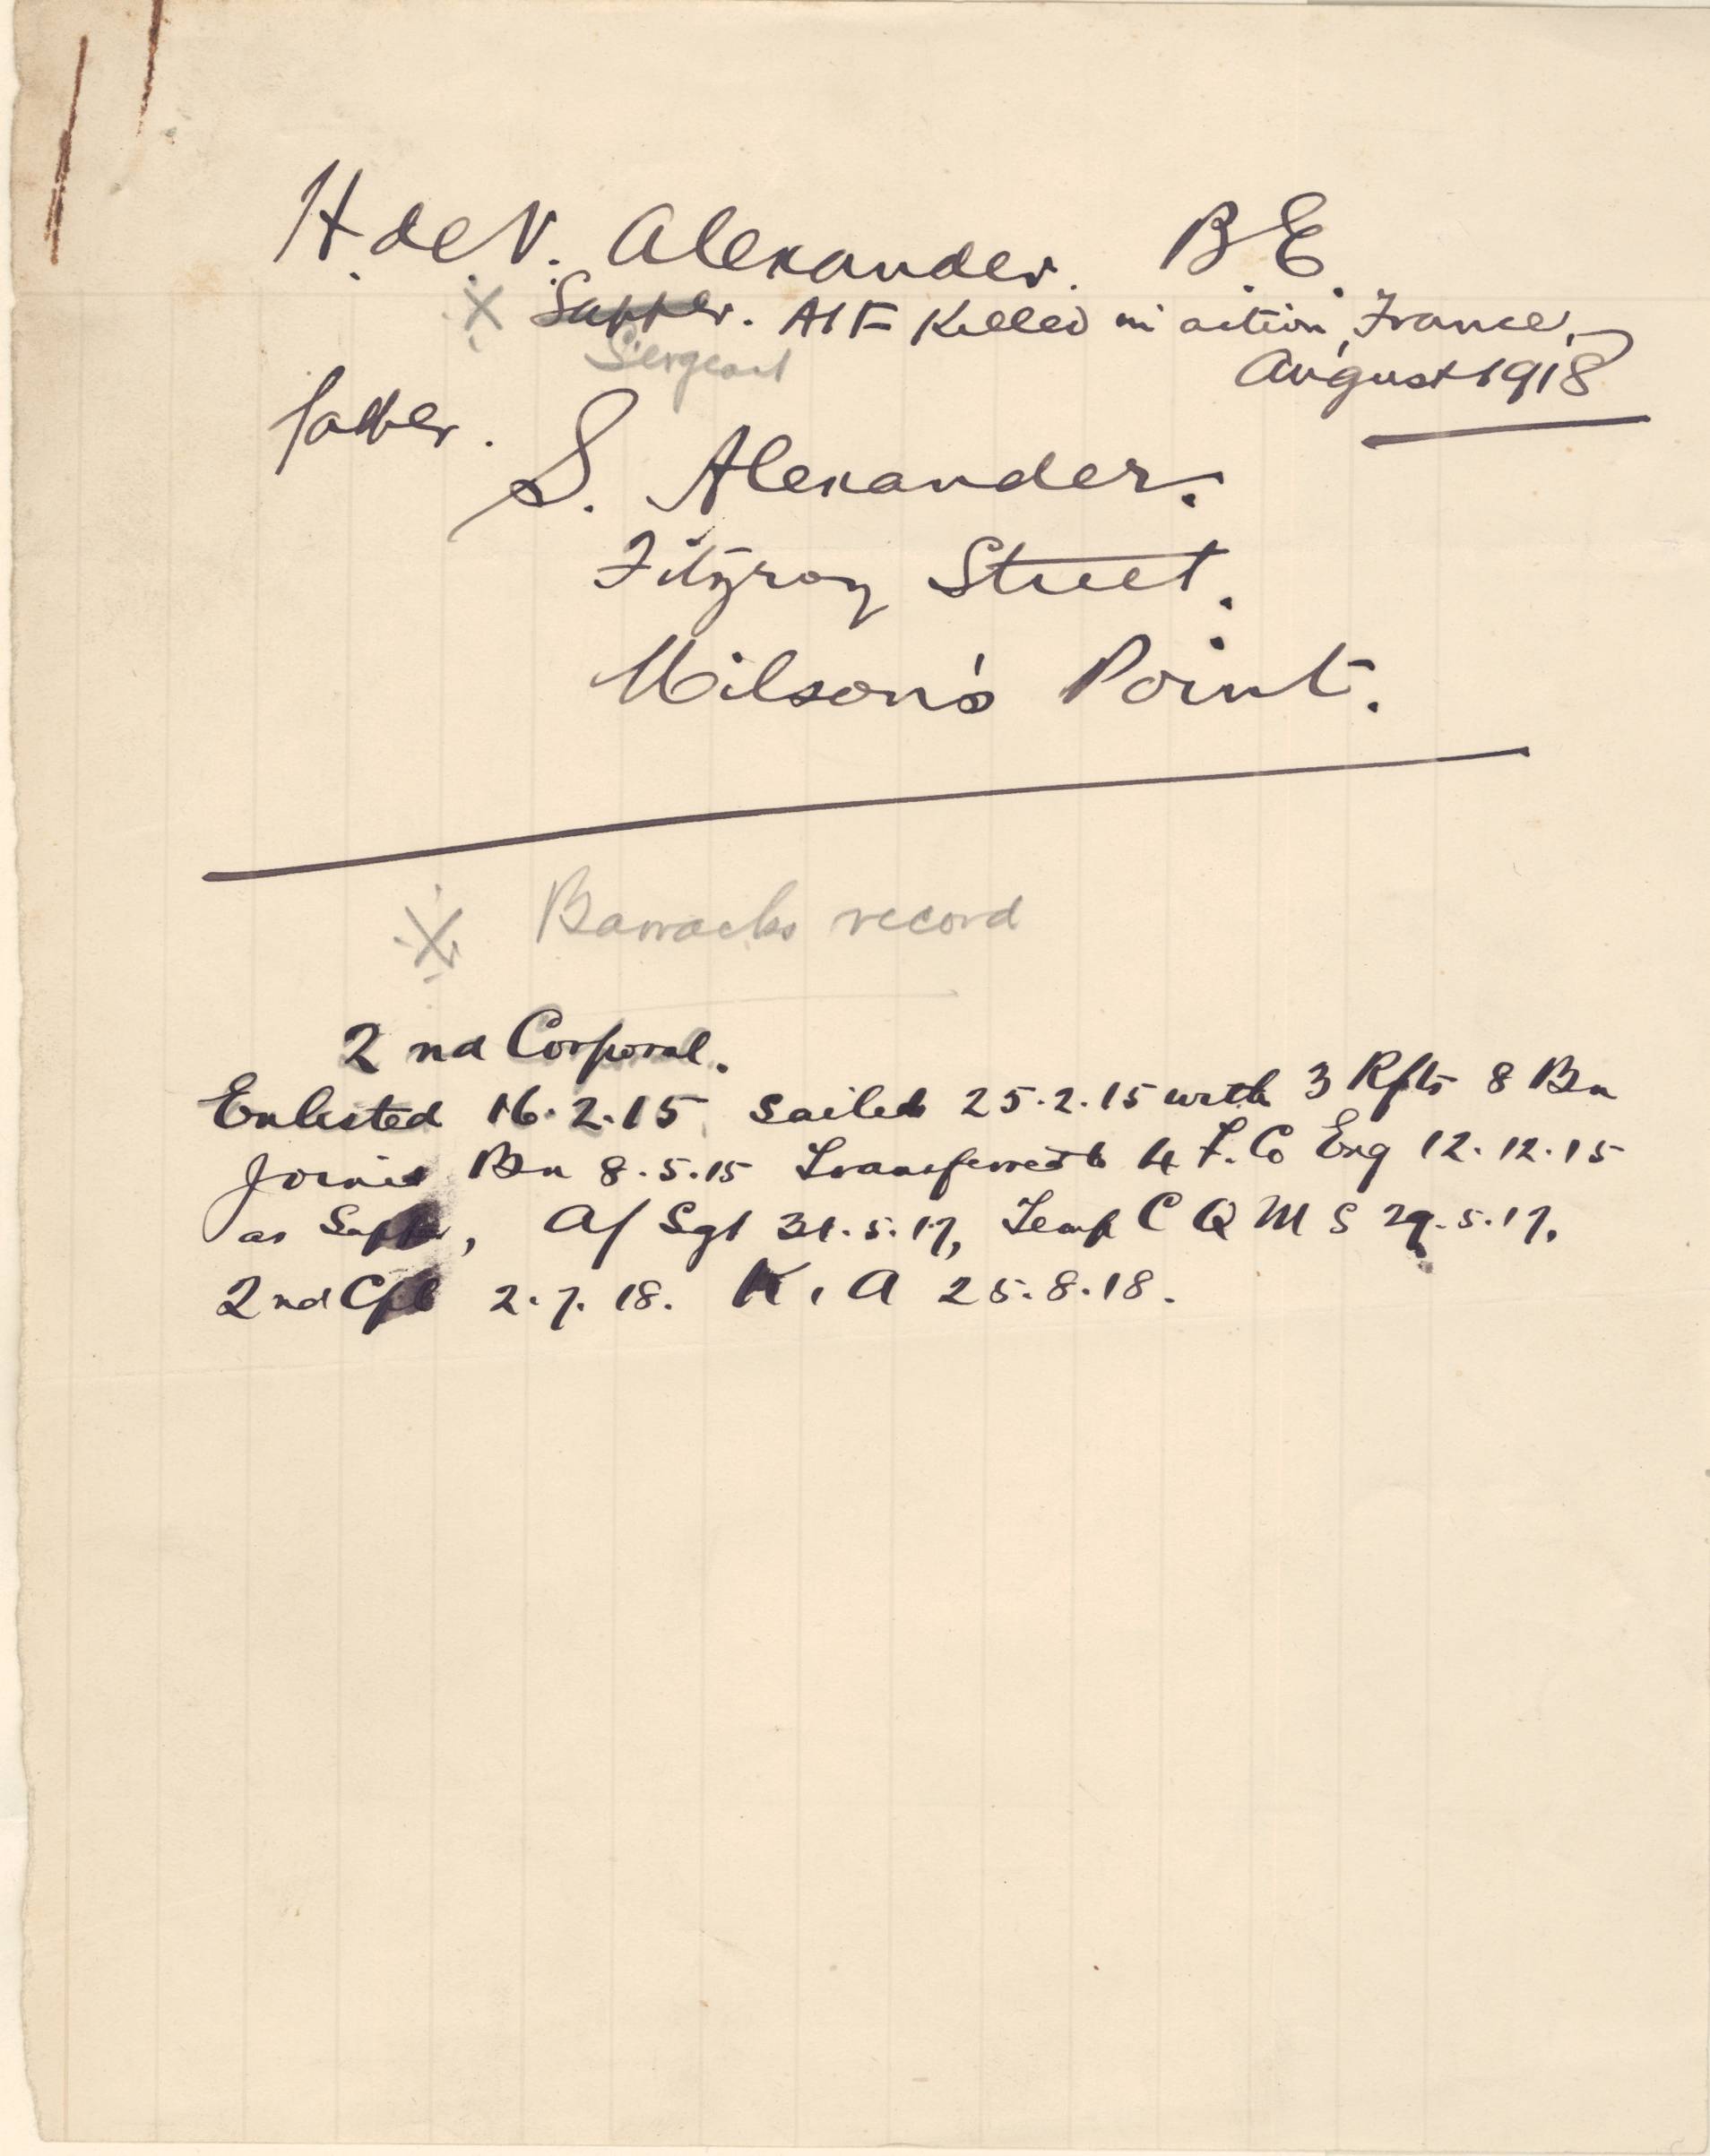 H. de V. Alexander. B.E.
※ Sapper. AIF Killed in action, France,
Sergeant
August 1918
father.
S. Alexander.
Fitzroy Street.
Milson's Point.
※ Barracks record
2nd Corporal.
Enlisted 16.2.15, sailed 25.2.15 with 3 Rfts 8 Bn
Joined Bn 8.5.15 Transferred to 4 F. Co Eng 12.12.15
as Sapper, A/Sgt 31.5.17, Temp C Q M S 29.5.17.
2nd Cpl 2.7.18. K. A 25.8.18.